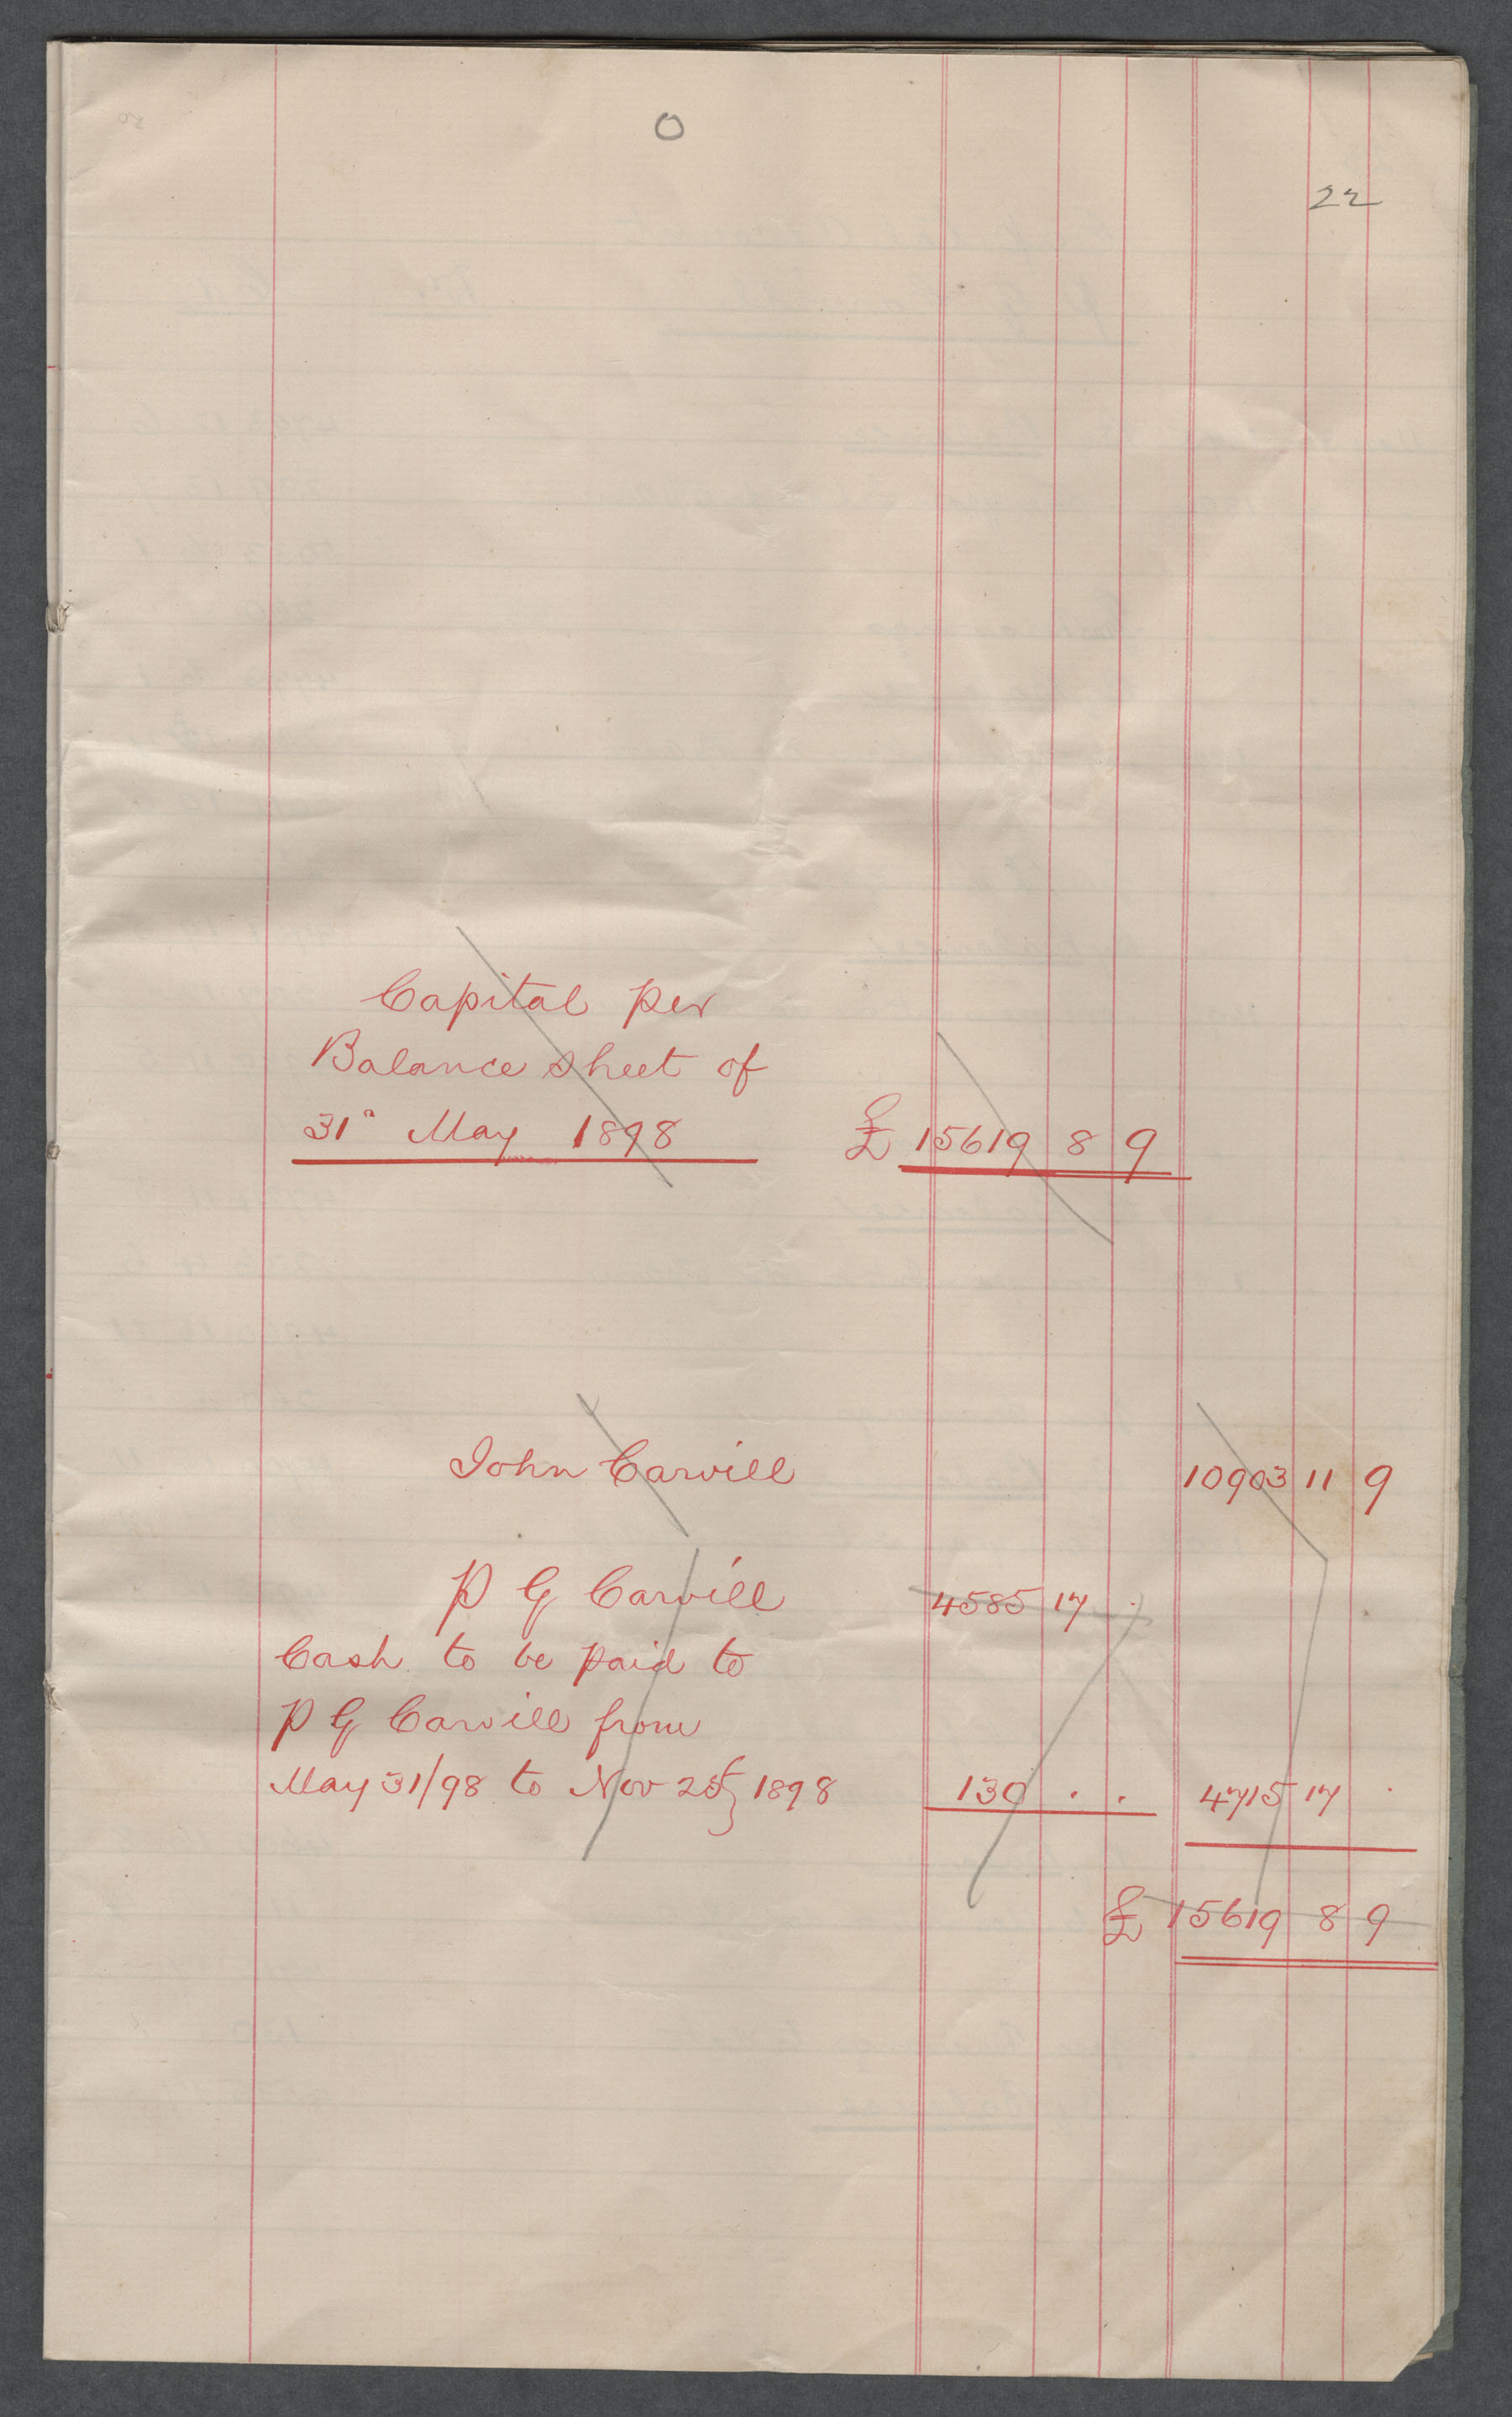 0
22
Capital per
Balance Sheet of
31" May 1898 £ 15619 8 9
John Carvill 10903 11 9
P G Carvill 4585 17 .
Cash to be paid to
P G Carvill from
May 31/98 to Nov 25 1898 130 . . 4715 17 .
£ 15619 8 9